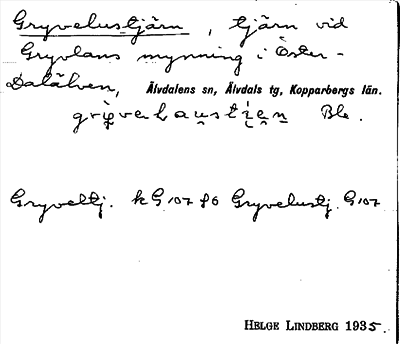 Gryvelustjärn, tjärn vid
Gryvlans mynning i Öster-
Dalälven, Älvdalens sn, Älvdals tg, Kopparbergs län.
Ble.
Gryveltj. k G 107 fö Gryvelustj. G 107
HELGE LINDBERG 1935.